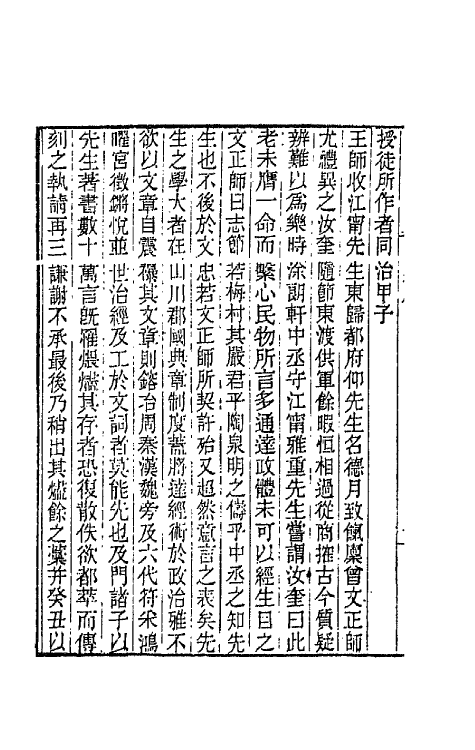 授徒所作者同治甲子
王師收江甯先生東歸都府仰先生名德月致餼廩曾文正師
尤禮異之汝奎隨節東渡供軍餘暇恒相過從商搉古今質疑
辨難以爲樂時涂朗軒中丞守江甯雅重先生嘗謂汝奎曰此
老未膺一命而繫心民物所言多通達政體未可以經生目之
文正師曰志節若梅村其嚴君平陶泉明之儔乎中丞之知先
生也不後於文忠若文正師所契許殆又超然意言之表矣先
生之學大者在山川郡國典章制度蓋將達經術於政治雅不
欲以文章自震襮其文章則鎔冶周秦漢魏旁及六代符采鴻
曜宮徵鏘悅並世治經及工於文詞者莫能先也及門諸子以
先生著書數十萬言旣罹煨燼其存者恐復散佚欲都萃而傳
刻之執請再三謙謝不承最後乃稍出其燼餘之藁幷癸丑以